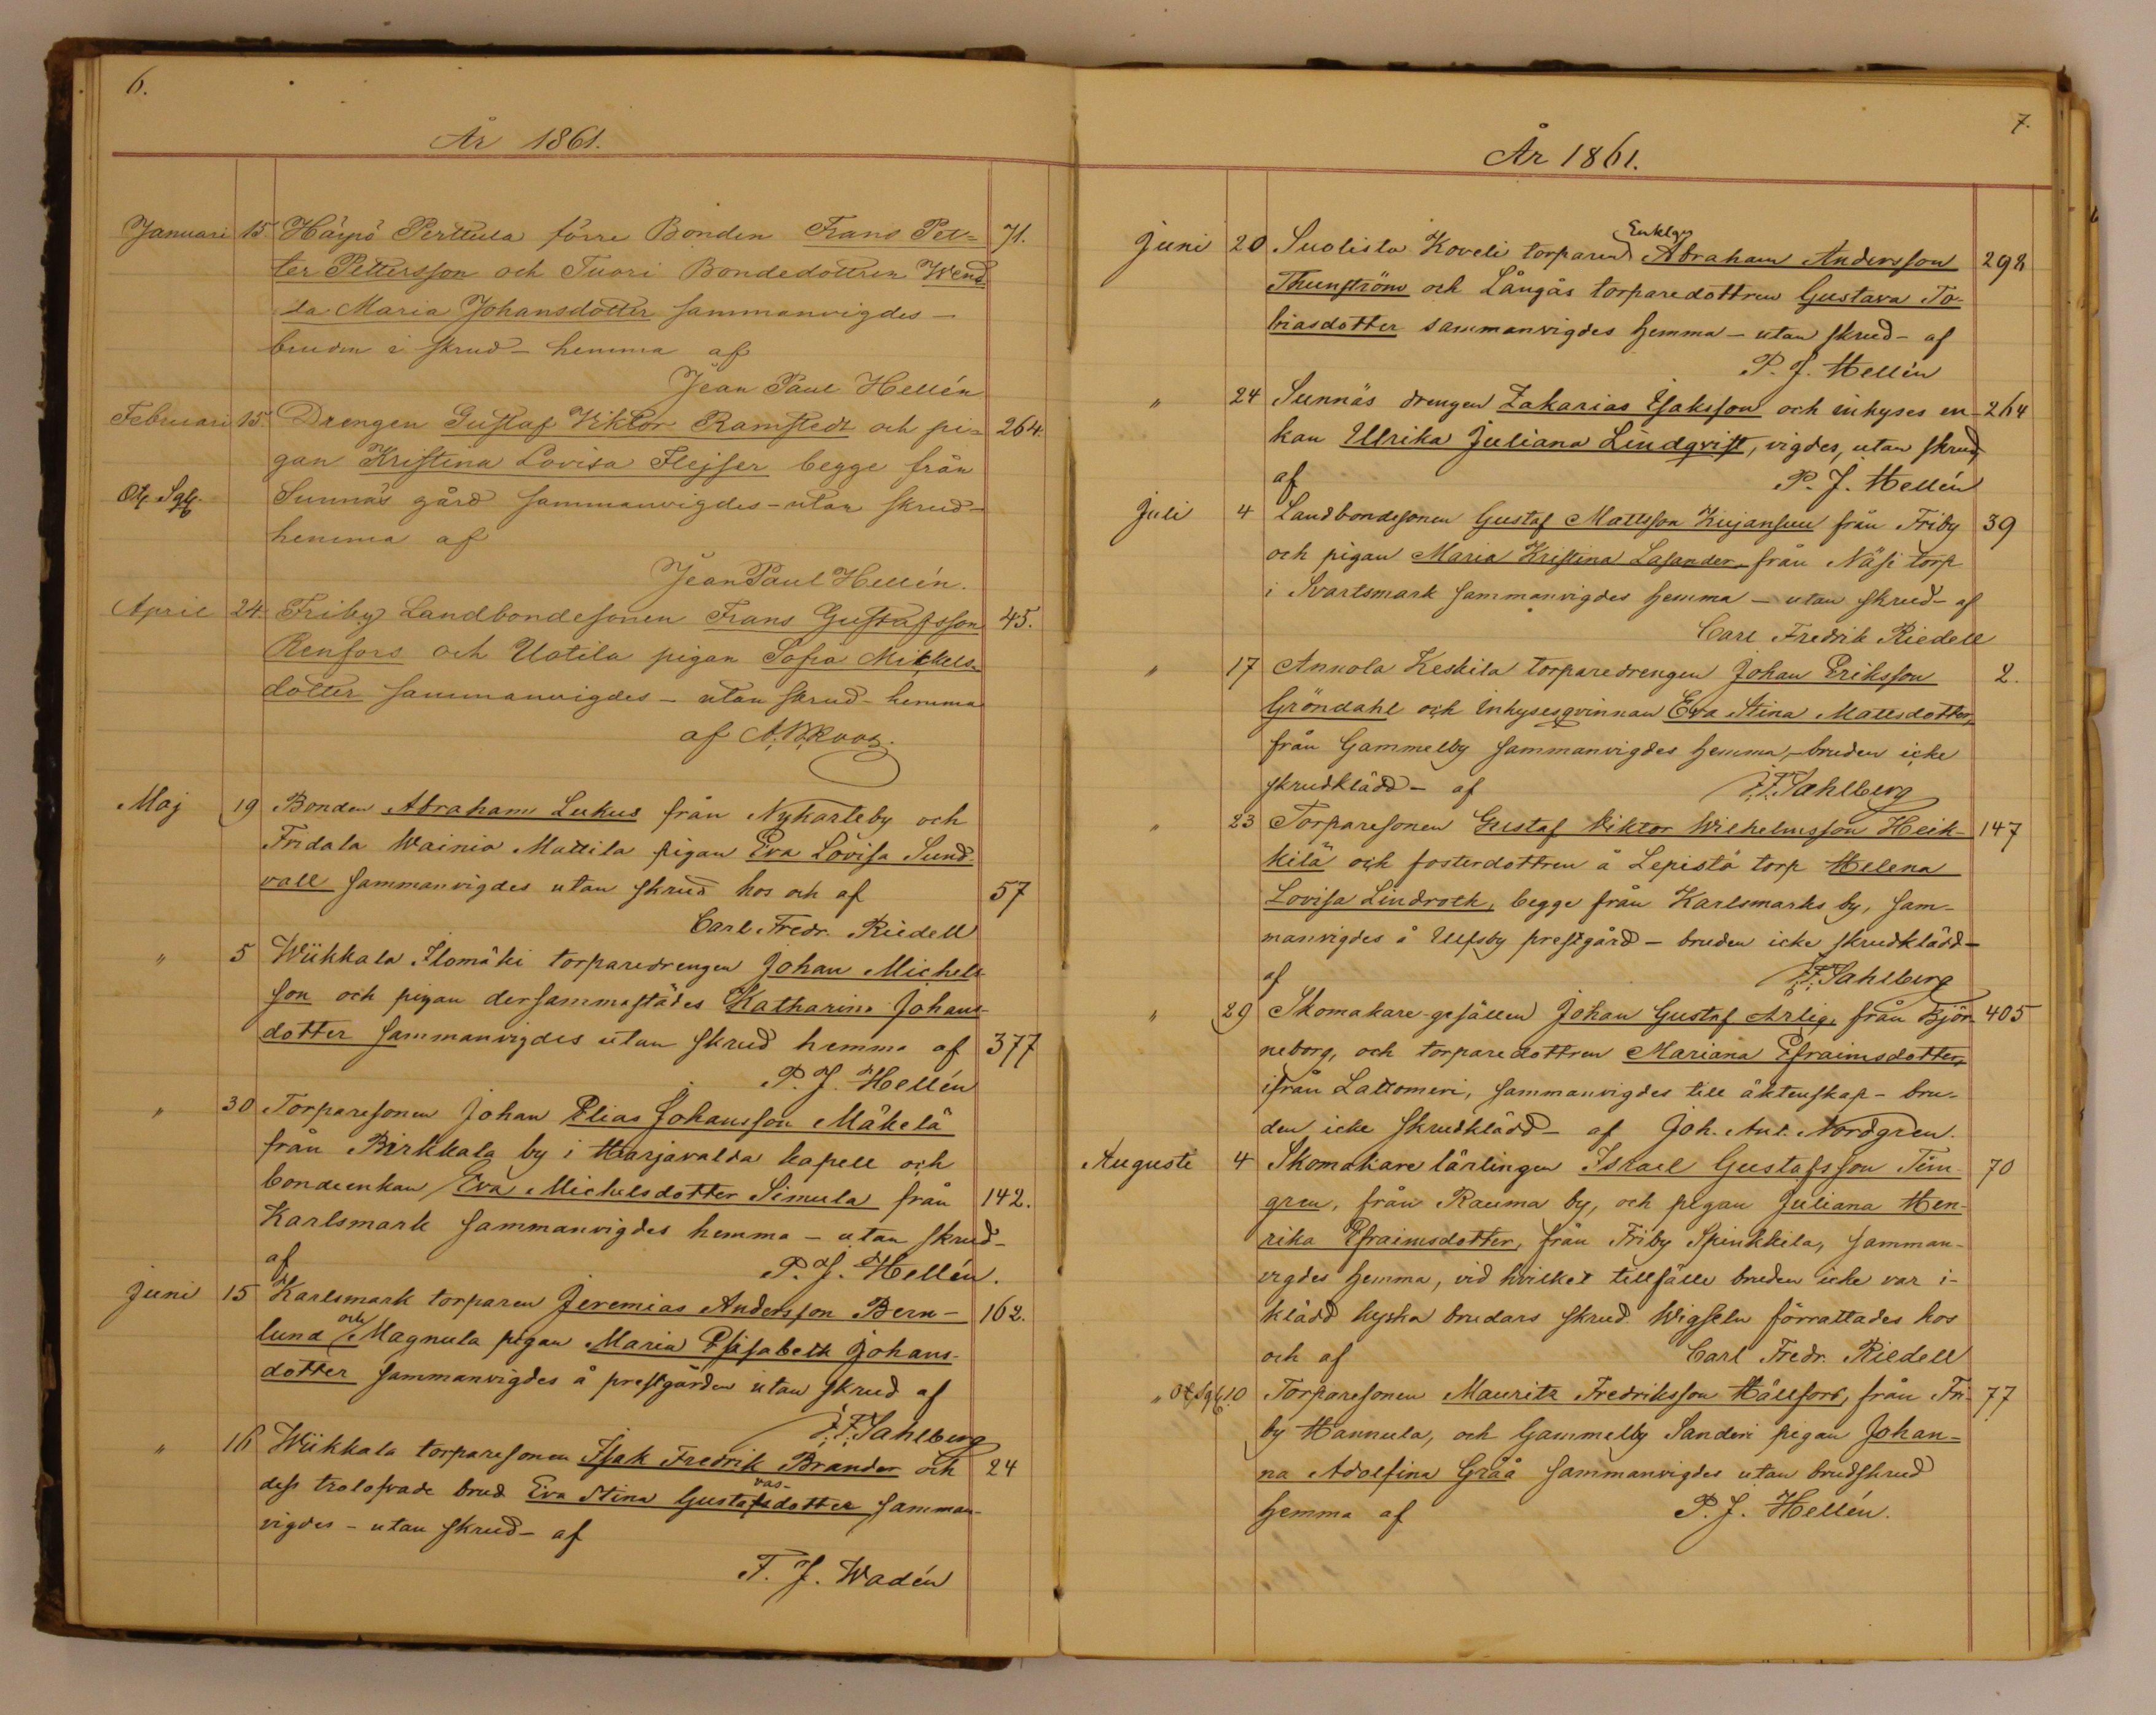 6.
År 1861.
Januari 15 Härpö Perttula förre Bonden Frans Pet= 71.
ter Pettersson och Tuori Bondedottren Wend
la Maria Johansdotter sammanvigdes –
bruden i skrud – hemma af
Jean Paul Hellén
Februari 15 Drengen Gustaf Viktor Ramstedt och pi= 264.
gan Kristina Lovisa Flejser begge från
Sunnäs gård sammanvigdes – utan skrud –
hemma af
Jean Paul Hellén.
April 24. Friby Landbondesonen Frans Gustafsson 45.
Renfors och Uotila pigan Sofia Mikkels=
dotter sammanvigdes – utan skrud – hemma
af
Maj 19 Bonden Abraham Lukus från Nykarleby och
Fridala Wainio Mattila pigan Eva Lovisa Sund-
vall sammanvigdes utan skrud hos och af 57
Carl Fredr. Riedell
" 5 Wiikkala Ilomäki torparedrengen Johan Michels-
son och pigan dersammastädes Katharina Johans-
dotter sammanvigdes utan skrud hemma af 377
P. J. Hellén
" 30 Torparesonen Johan Elias Johansson Mäkelä
från Birkkala by i Harjavalda kapell och
bondeenkan Eva Michelsdotter Simula från 142.
Karlsmark sammanvigdes hemma – utan skrud –
af P. J. Hellén.
Juni 15 Karlsmark torparen Jeremias Andersson Bern– 162.
lund och Magnula pigan Maria Elisabeth Johans-
dotter sammanvigdes å prestgården utan skrud af
F. F. Sahlberg
" 16 Wiikkala torparesonen Isak Fredrik Brander och 24
dess trolofvade brud Eva Stina Gustafsdotter samman-
vigdes – utan skrud – af
F. J. Wadén
7.
År 1861.
Juni 20 Suolisto Koveli torparen Enklgn Abraham Andersson 298
Thunström och Långås torparedottren Gustava To-
biasdotter sammanvigdes hemma – utan skrud – af
P. J. Hellén
" 24 Sunnäs drengen Zakarias Isaksson och inhyses en- 264
kan Ulrika Juliana Lindqvist, vigdes, utan skrud,
af P. J. Hellén
Juli 4 Landbondesonen Gustaf Mattsson Kujansuu från Friby 39
och pigan Maria Kristina Lasander från Näsi torp
i Svartsmark sammanvigdes hemma – utan skrud – af
Carl Fredrik Riedell
" 17 Annola Keskila torparedrengen Johan Eriksson 2.
Gröndahl och Inhysesqvinnan Eva Stina Mattsdotter,
från Gammelby sammanvigdes hemma, – bruden icke
skrudklädd – af F. F. Sahlberg
" 23 Torparesonen Gustaf Viktor Wilhelmsson Heik- 147
kilä och fosterdottren å Lepistö torp Helena
Lovisa Lindroth, begge från Karlsmarks by, sam-
manvigdes å Ulfsby prestgård – bruden icke skrudklädd –
af F. F. Sahlberg
" 29 Skomakare-gesällen Johan Gustaf Arlig, från Björ- 405
neborg, och torparedottren Mariana Efraimsdotter,
ifrån Lattomeri, sammanvigdes till äktenskap – bru-
den icke skrudklädd – af Joh. Ant. Nordgren.
Auguste 4 Skomakare lärlingen Israel Gustafsson Tim- 70
gren, från Rauma by, och pigan Juliana Hen-
rika Efraimsdotter, från Friby Spinkkila, samman-
vigdes hemma, vid hvilket tillfälle bruden icke var i-
klädd kyska brudars skrud. Wigseln förrättades hos
och af Carl Fredr. Riedell
" 10 Torparesonen Mauritz Fredriksson Hällfors, från Fri- 77
by Hannula, och Gammelby Sanderi pigan Johan-
na Adolfina Gråå sammanvigdes utan brudskrud
hemma af P. J. Hellén.